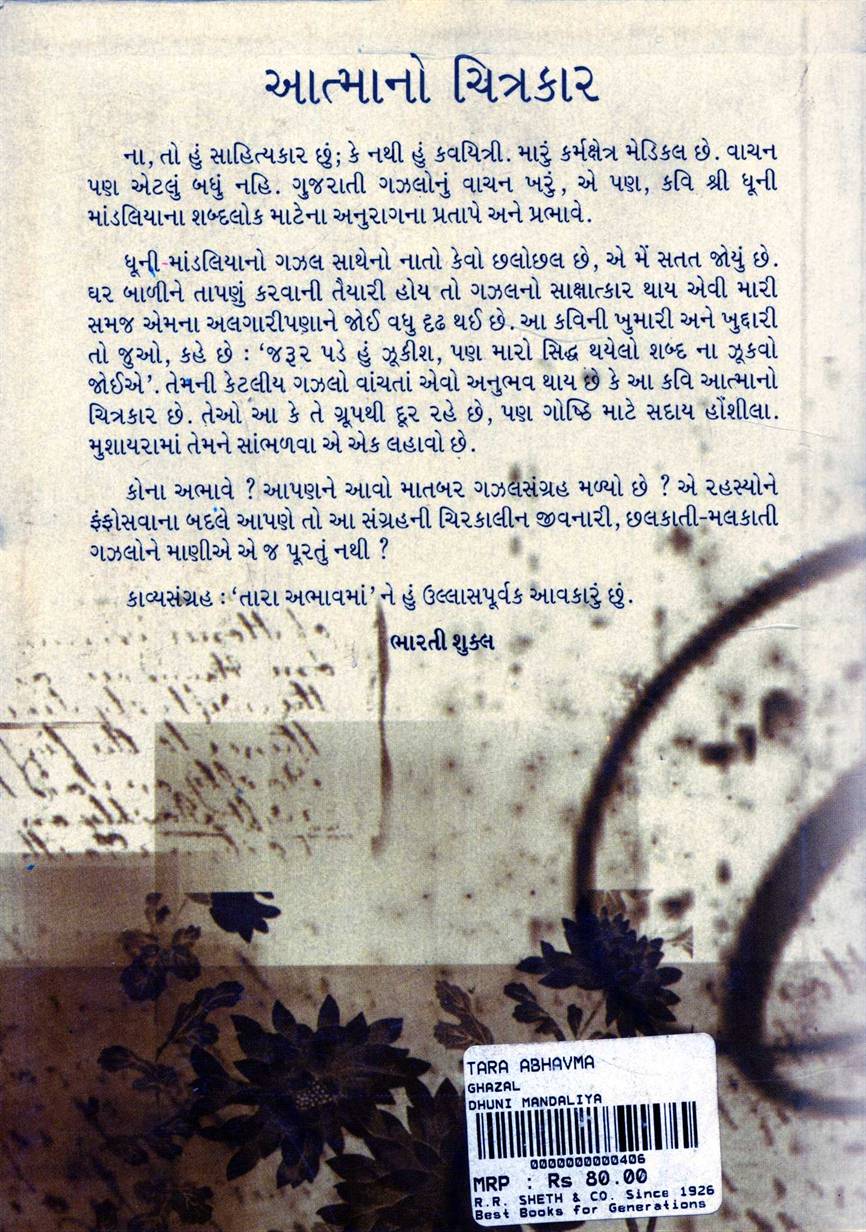 આત્માનો ચિત્રકાર
ના, તો હું સાહિત્યકાર છું; કે નથી હું કવયિત્રી. મારું કર્મક્ષેત્ર મેડિકલ છે. વાચન
પણ એટલું બધું નહિ. ગુજરાતી ગઝલોનું વાચન ખરું, એ પણ, કવિ શ્રી ધૂની
માંડલિયાના શબ્દલોક માટેના અનુરાગના પ્રતાપે અને પ્રભાવે.
ધૂની માંડલિયાનો ગઝલ સાથેનો નાતો કેવો છલોછલ છે, એ મેં સતત જોયું છે.
ઘર બાળીને તાપણું કરવાની તૈયારી હોય તો ગઝલનો સાક્ષાત્કાર થાય એવી મારી
સમજ એમના અલગારીપણાને જોઈ વધુ દૃઢ થઈ છે. આ કવિની ખુમારી અને ખુદ્દારી
તો જુઓ, કહે છે : ‘જરૂર પડે હું ઝૂકીશ, પણ મારો સિદ્ધ થયેલો શબ્દ ના ઝૂકવો
જોઈએ’. તેમની કેટલીય ગઝલો વાંચતાં એવો અનુભવ થાય છે કે આ કવિ આત્માનો
ચિત્રકાર છે. તેઓ આ કે તે ગ્રૂપથી દૂર રહે છે, પણ ગોષ્ઠિ માટે સદાય હોંશીલા.
મુશાયરામાં તેમને સાંભળવા એ એક લહાવો છે.
કોના અભાવે ? આપણને આવો માતબર ગઝલસંગ્રહ મળ્યો છે ? એ રહસ્યોને
ફંફોસવાના બદલે આપણે તો આ સંગ્રહની ચિરકાલીન જીવનારી, છલકાતી-મલકાતી
ગઝલોને માણીએ એ જ પૂરતું નથી ?
કાવ્યસંગ્રહ : ‘તારા અભાવમાં’ ને હું ઉલ્લાસપૂર્વક આવકારું છું.
ભારતી શુક્લ
TARA ABHAVMA
GHAZAL
DHUNI MANDALIYA
0000000000406
MRP : Rs 80.00
R.R. SHETH & CO. Since 1926
Best Books for Generations